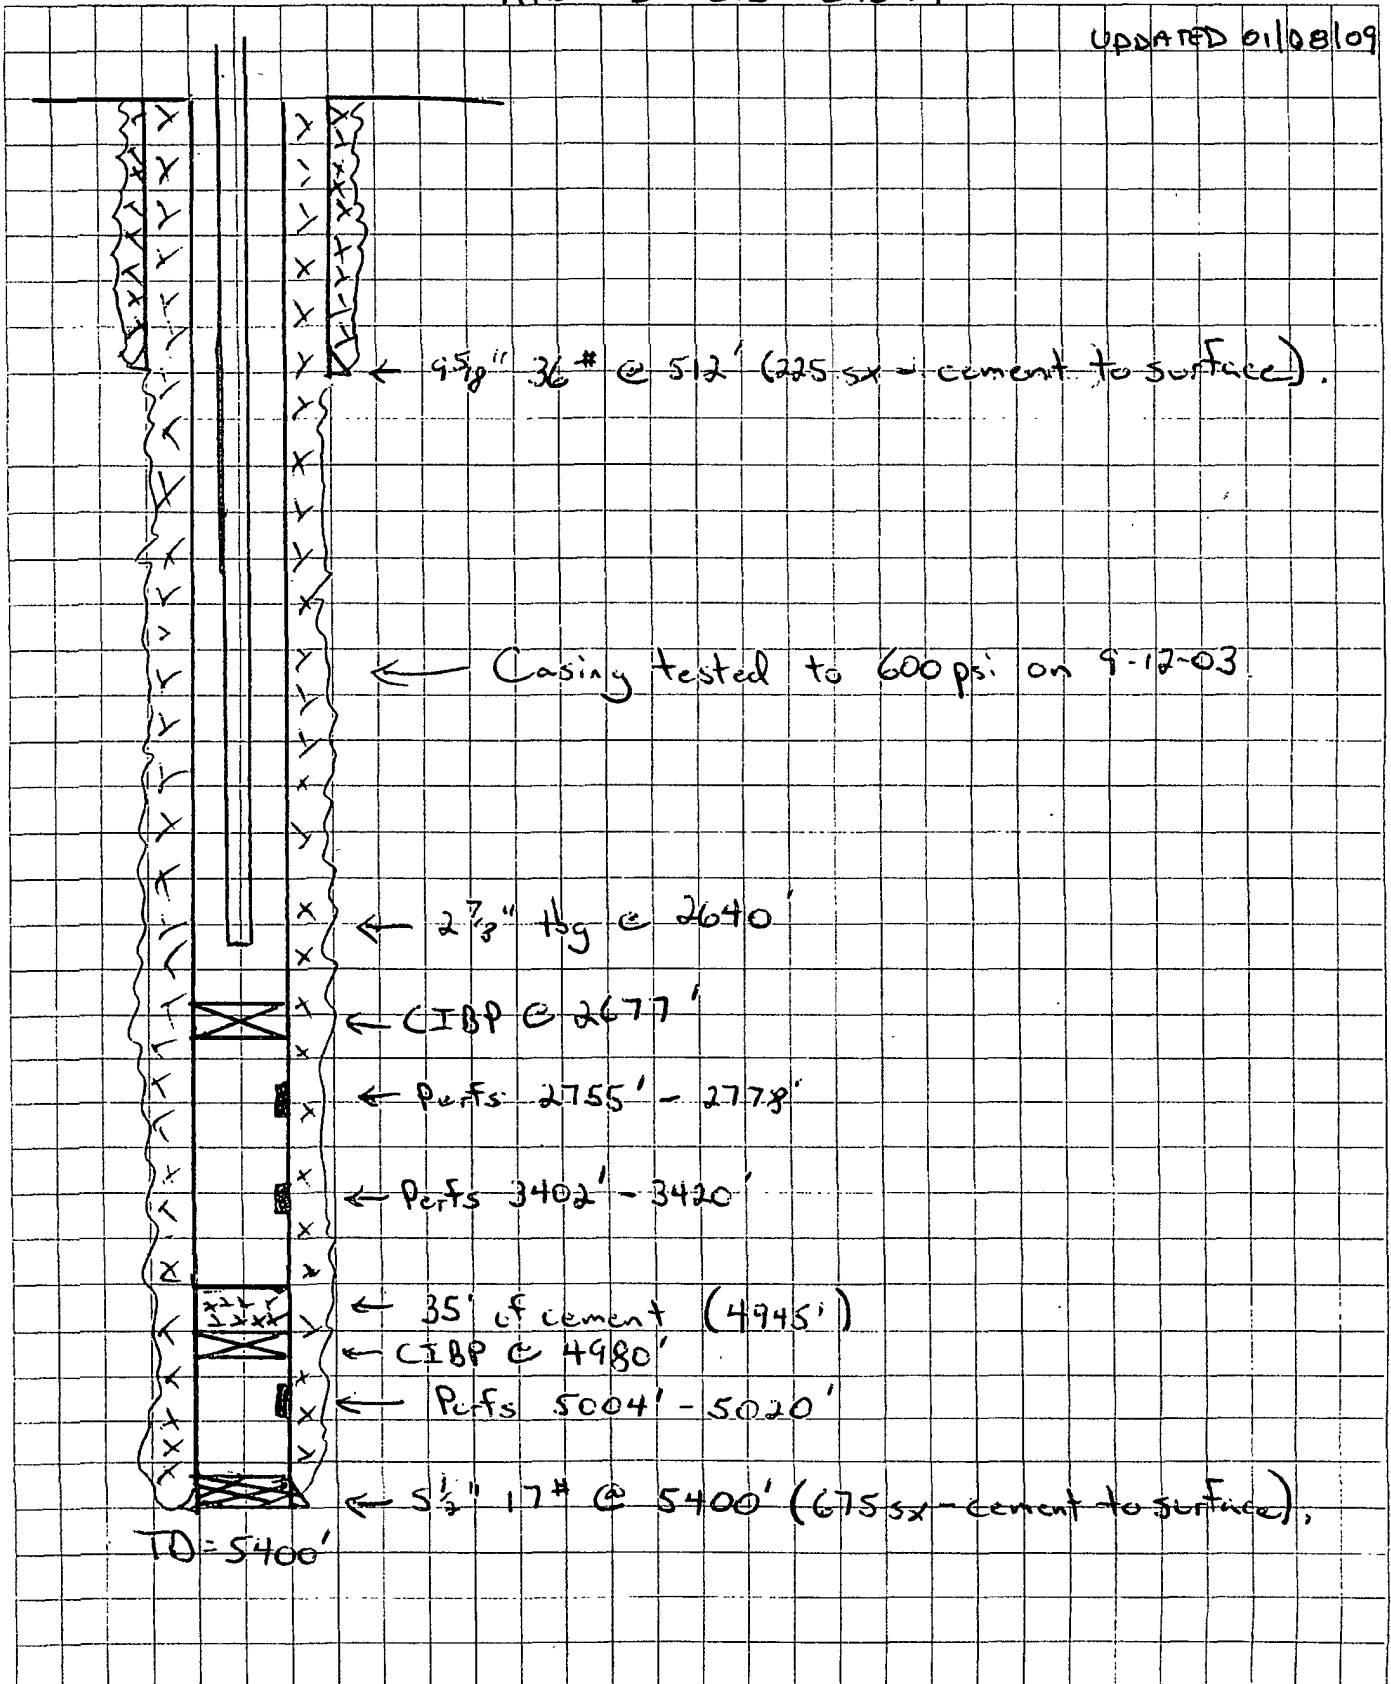 UPDATED 01/08/09
← 9 5/8" 36# @ 512' (225 sx - cement to surface).
← Casing tested to 600 psi on 9-12-03
← 2 7/8" tbg @ 2640'
← CIBP @ 2677'
← Perfs 2755' - 2778'
← Perfs 3402' - 3420'
← 35' of cement (4945')
← CIBP @ 4980'
← Perfs 5004' - 5020'
← 5 1/2" 17# @ 5400' (675 sx - cement to surface).
TD = 5400'